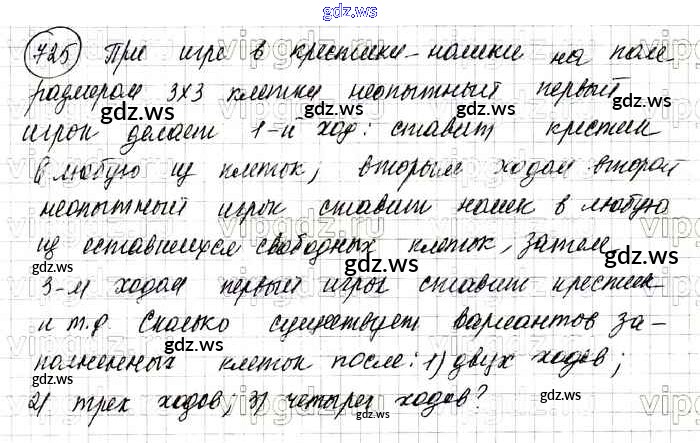 gdz.ws
725 При игре в крестики-нолики на поле
размером 3х3 клетки неопытный первый
игрок делает 1-й ход: ставит крестик
в любую из клеток; вторым ходом второй
неопытный игрок ставит нолик в любую
из оставшихся свободных клеток, затем
3-м ходом первый игрок ставит крестик
и т.д. Сколько существует вариантов за-
полненных клеток после: 1) двух ходов;
2) трех ходов; 3) четырех ходов?